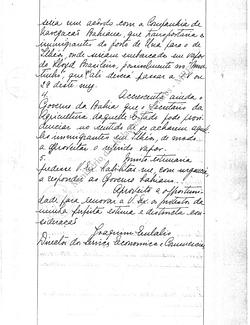 seria um acôrdo com a Companhia de
Navegação Bahiana, que transportaria os
immigrantes do porto de Una para o de
Ilhéos, onde seriam embarcados em vapor
do Lloyd Brasileiro, possivelmente no
que ali devia passar a 28 ou
29 deste mez.
4. Accrescenta ainda o
Governo da Bahia que o Secretario da
Agricultura daquelle Estado pode
providenciar no sentido de se acharem
immigrantes em Ilhéos, de modo
a aproveitar o referido vapor.
5. Muito estimaria
pudesse V. Ex. habilitar-me, com urgencia,
a responder ao Governo bahiano.
Aproveito a opportunidade
para renovar a V. Ex. os protestos de
minha perfeita estima e distincta
consideração.
Joaquim Eulalio
Director dos Serviços Economicos e Commerciaes